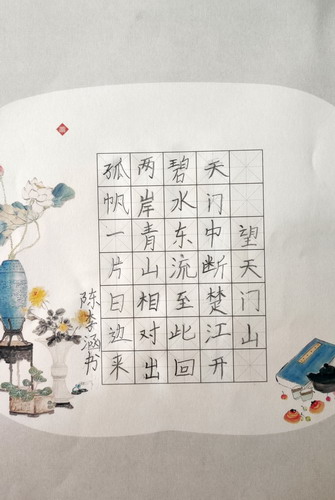 望天门山
天门中断楚江开
碧水东流至此回
两岸青山相对出
孤帆一片日边来
陈李涵书